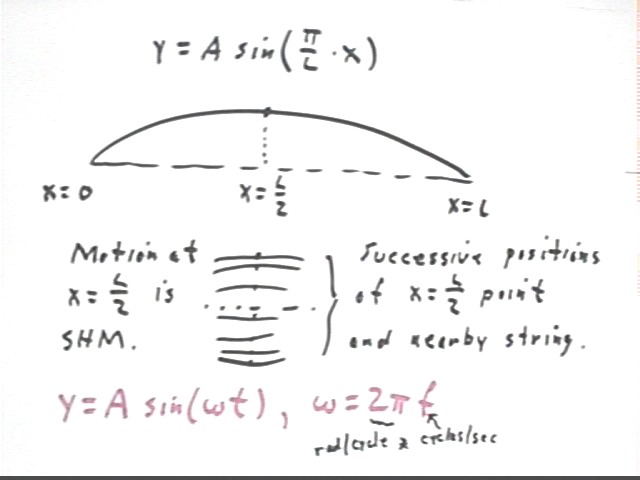 y = A sin(π/L · x)
x = 0
x = L/2
x = L
Motion at
x = L/2 is
SHM.
Successive positions
of x = L/2 point
and nearby string.
y = A sin(ωt), ω = 2πf
rad/cycle * cycles/sec